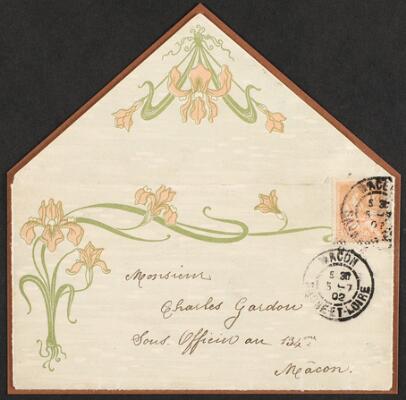 MACON
5 30
5 - 7
02
MACON
5 30
5 - 7
02
SAONE-ET-LOIRE
Monsieur
Charles Gardon
Sous Officier au 134me
Mâcon.